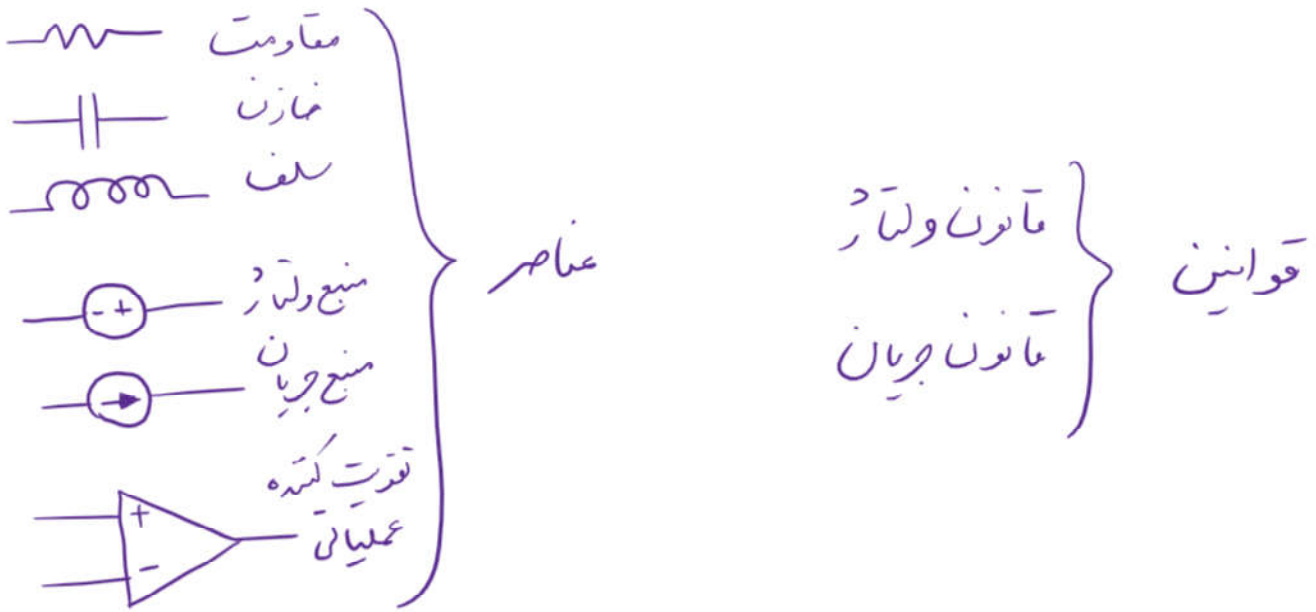 مقاومت
خازن
سلف
منبع ولتاژ
- +
منبع جریان
تقویت کننده
عملیاتی
+
-
عناصر
قانون ولتاژ
قانون جریان
قوانین